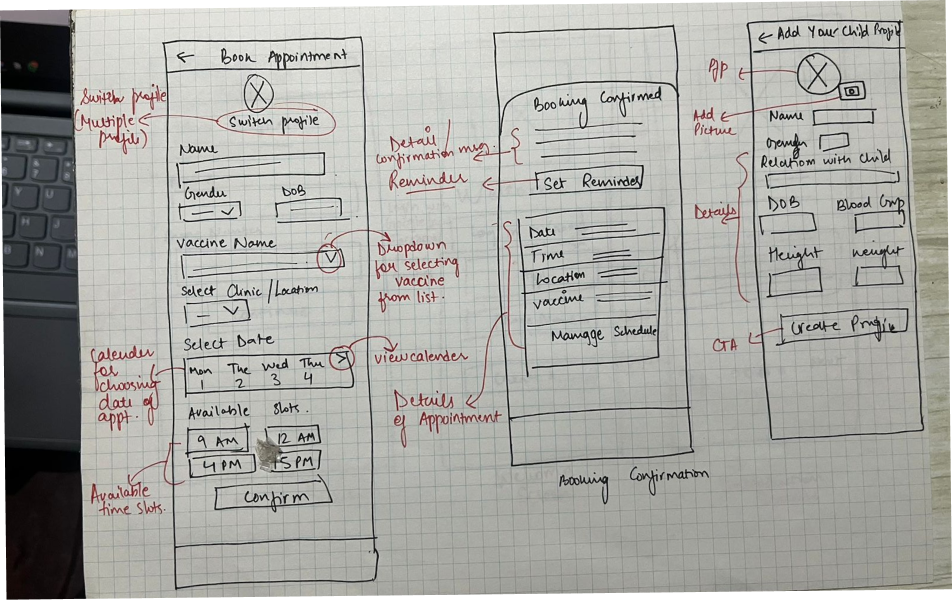 ← Book Appointment
Switch profile
Switch profile
(Multiple
profile)
Name
Gender
DOB
Vaccine Name
Dropdown
for selecting
vaccine
from list.
Select Clinic / Location
Select Date
Mon Tue Wed Thu
1 2 3 4
View calender
Calender
for
choosing
date of
appt.
Available Slots.
9 AM
12 AM
4 PM
5 PM
Available
time slots.
Confirm
Booking Confirmed
Detail /
confirmation msg.
Reminder
Set Reminder
Date
Time
Location
Vaccine
Manage Schedule
Details
of Appointment
Booking Confirmation
← Add Your Child Profile
Add
Picture
Name
Gender
Relation with child
Details
DOB
Blood Grp
Height
Weight
Create Profile
CTA